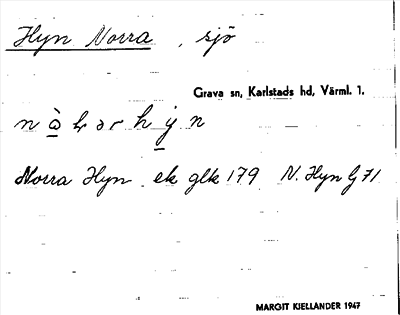 Hyn Norra, sjö
Grava sn, Karlstads hd, Värml. l.
Norra Hyn ek glk 179 N. Hyn G 71
MARGIT KJELLANDER 1947